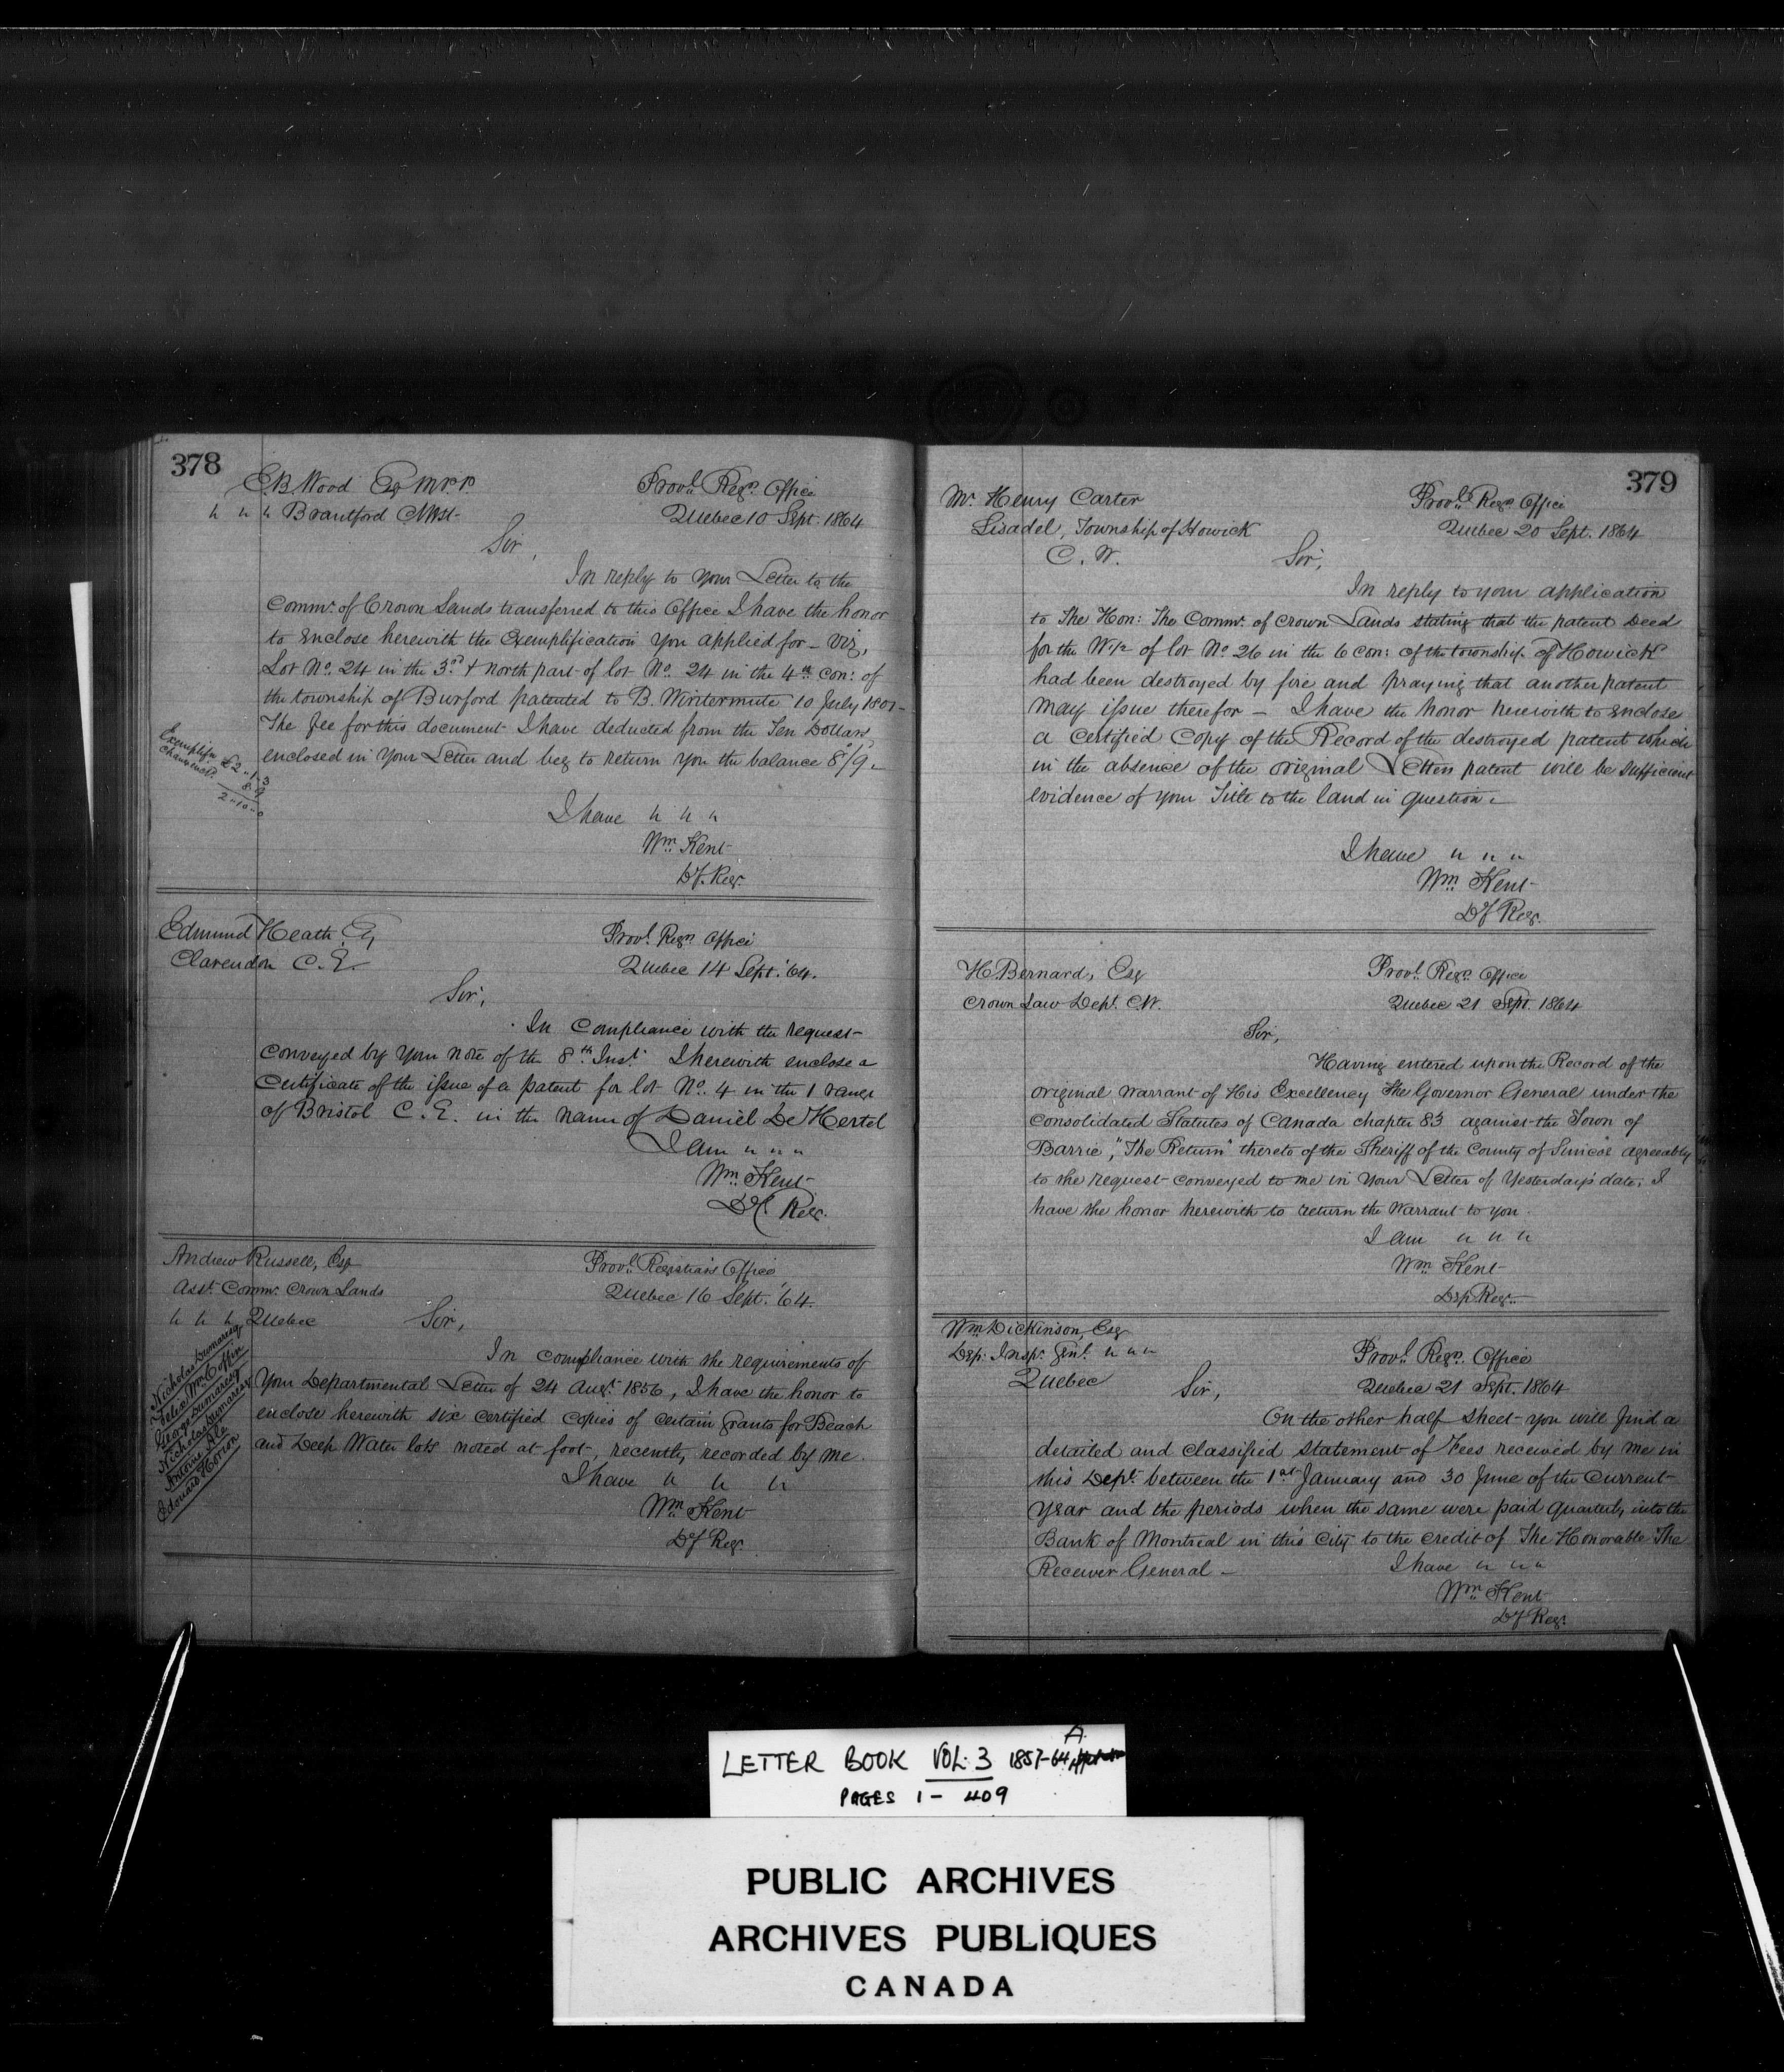 378
E.B. Wood Esq M.P.P.
" " " Brantford C West
Provl. Regrs. Office
Quebec 10 Sept. 1864
Sir,
In reply to your Letter to the
Commr. of Crown Lands transferred to this Office I have the honor
to enclose herewith the Exemplification you applied for – Viz,
Lot No. 24 in the 3rd & north part of lot No. 24 in the 4th Con: of
the township of Burford patented to B. Wintermute 10 July 1801 –
The fee for this document I have deducted from the Ten Dollars
enclosed in your Letter and beg to return you the balance 8/9.
Exemplifn £2 " 1 " 3
8 " 9
2 " 10 " 0
I have " " "
Wm. Kent
Dy. Regr.
Edmund Heath Esq
Clarendon C.E.
Provl. Regrs Office
Quebec 14 Sept. '64.
Sir,
In compliance with the request
conveyed by your note of the 8th Inst. I herewith enclose a
Certificate of the issue of a patent for lot No. 4 in the 1 range
of Bristol C.E. in the name of Daniel De Hertel
I am " " "
Wm. Kent
Dy. Regr.
Andrew Russell, Esq
Asst. Commr. Crown Lands
" " " Quebec
Provl. Registrar's Office
Quebec 16 Sept. '64.
Sir,
In compliance with the requirements of
Your Departmental Letter of 24 Augt. 1856, I have the honor to
enclose herewith six certified copies of certain grants for Beach
and Deep Water lots noted at foot, recently recorded by me.
Nicholas Dumaresq
Felix Wm. Coffin
George Dumaresq
Nicholas Dumaresq
Antoine Ale
Edouard Horion
I have " " "
Wm. Kent
Dy Regr
379
Mr. Henry Carter
Lisadel, Township of Howick
C. W.
Provl. Regrs Office
Quebec 20 Sept. 1864
Sir,
In reply to your application
to The Hon: The Commr. of Crown Lands stating that the patent Deed
for the W½ of lot No 26 in the 6 con: of the township of Howick
had been destroyed by fire and praying that another patent
may issue therefor – I have the honor herewith to enclose
a Certified Copy of the Record of the destroyed patent which
in the absence of the original Letters patent will be sufficient
evidence of your Title to the land in question.
I have " " "
Wm. Kent
Dy Regr.
H. Bernard, Esq
Crown Law Dept. C.W.
Provl. Regrs Office
Quebec 21 Sept. 1864
Sir,
Having entered upon the Record of the
original Warrant of His Excellency The Governor General under the
Consolidated Statutes of Canada chapter 83 against the Town of
Barrie, "The Return" thereto of the Sheriff of the County of Simcoe agreeably
to the request conveyed to me in your Letter of Yesterday's date; I
have the honor herewith to return the Warrant to you.
I am " " "
Wm. Kent
Dep Regr.
Wm. Dickinson, Esq
Dep: Inspr. Genl. " " "
Quebec
Provl. Regrs. Office
Quebec 21 Sept. 1864
Sir,
On the other half sheet you will find a
detailed and classified statement of Fees received by me in
this Dept. between the 1st January and 30 June of the Current
Year and the periods when the same were paid quarterly into the
Bank of Montreal in this City to the credit of The Honorable The
Receiver General –
I have " " "
Wm. Kent
Dy Regr.
LETTER BOOK VOL. 3 1857-64 A
PAGES 1 - 409
PUBLIC ARCHIVES
ARCHIVES PUBLIQUES
CANADA